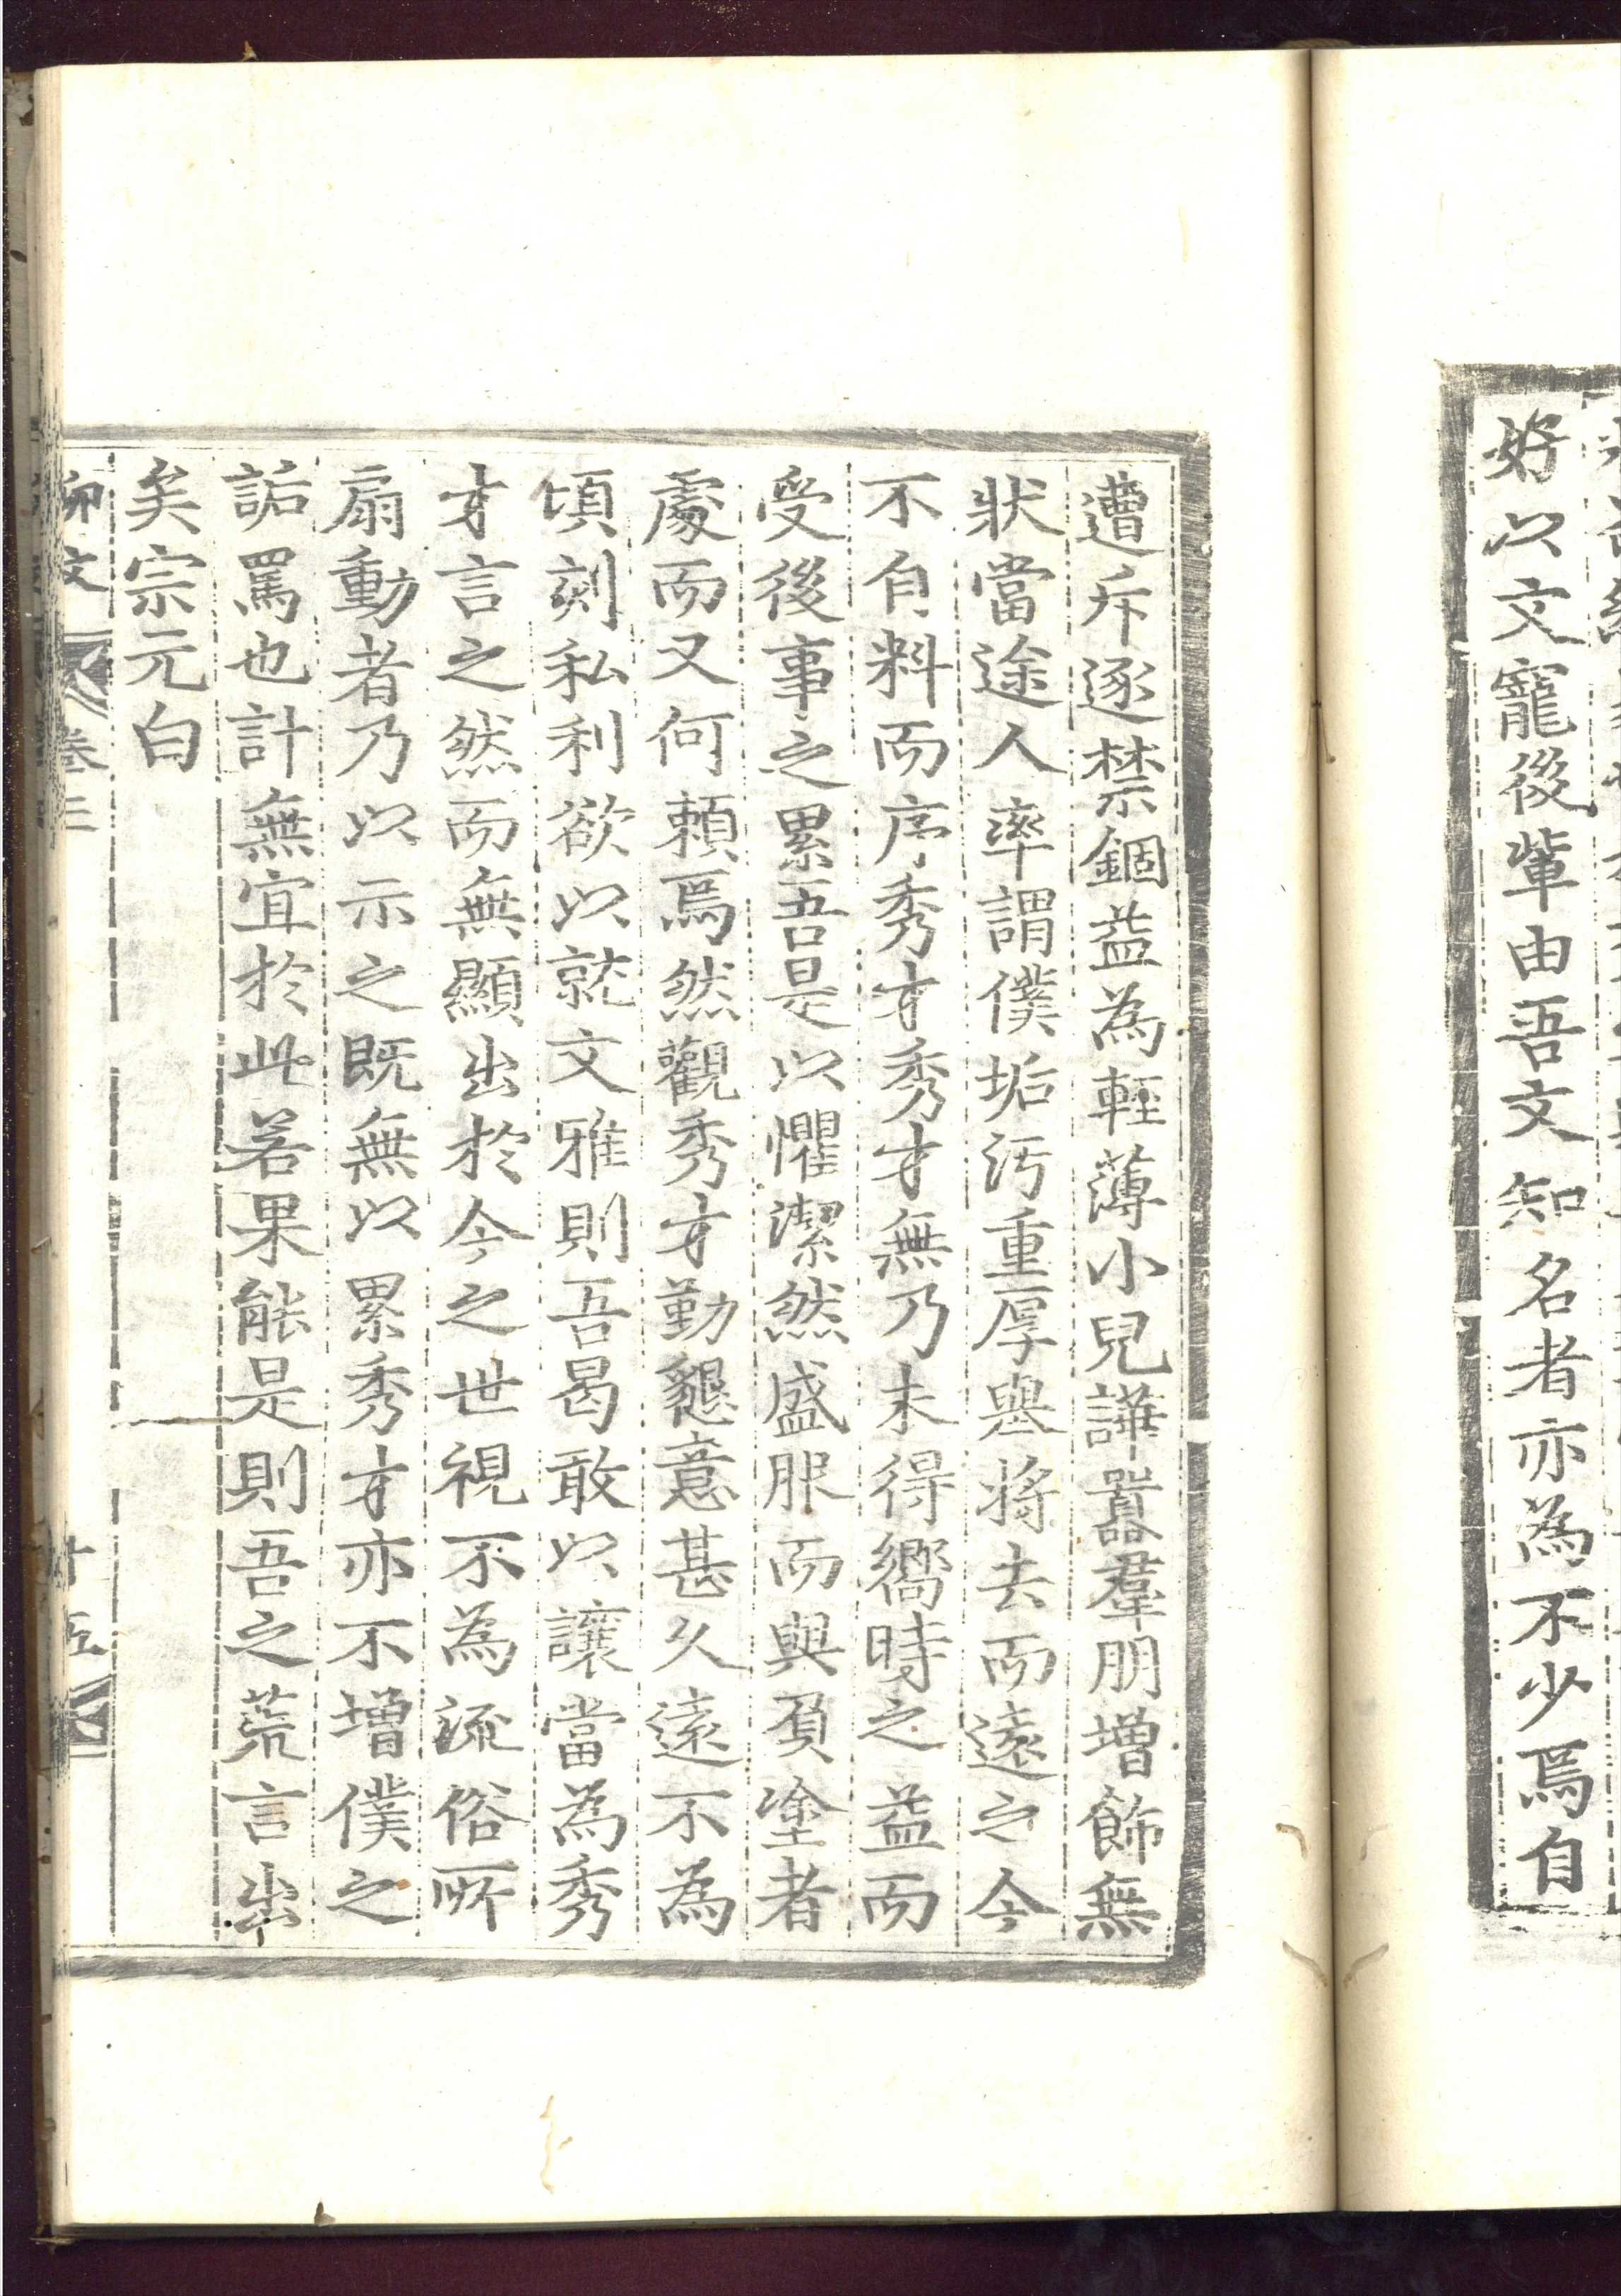 好以文寵後輩由吾文知名者亦為不少焉自
遭斥逐禁錮益為輕薄小兒譁囂羣朋增飾無
狀當途人率謂僕垢汚重厚舉將去而遠之今
不自料而序秀才秀才無乃未得嚮時之益而
受後事之累吾是以懼潔然盛服而與負塗者
處而又何頼焉然觀秀才勤懇意甚久遠不為
頃刻私利欲以就文雅則吾曷敢以讓當為秀
才言之然而無顯出於今之世視不為流俗所
扇動者乃以示之既無以累秀才亦不增僕之
詬罵也計無宜於此若果能是則吾之荒言出
矣宗元白
柳文 卷三 十五